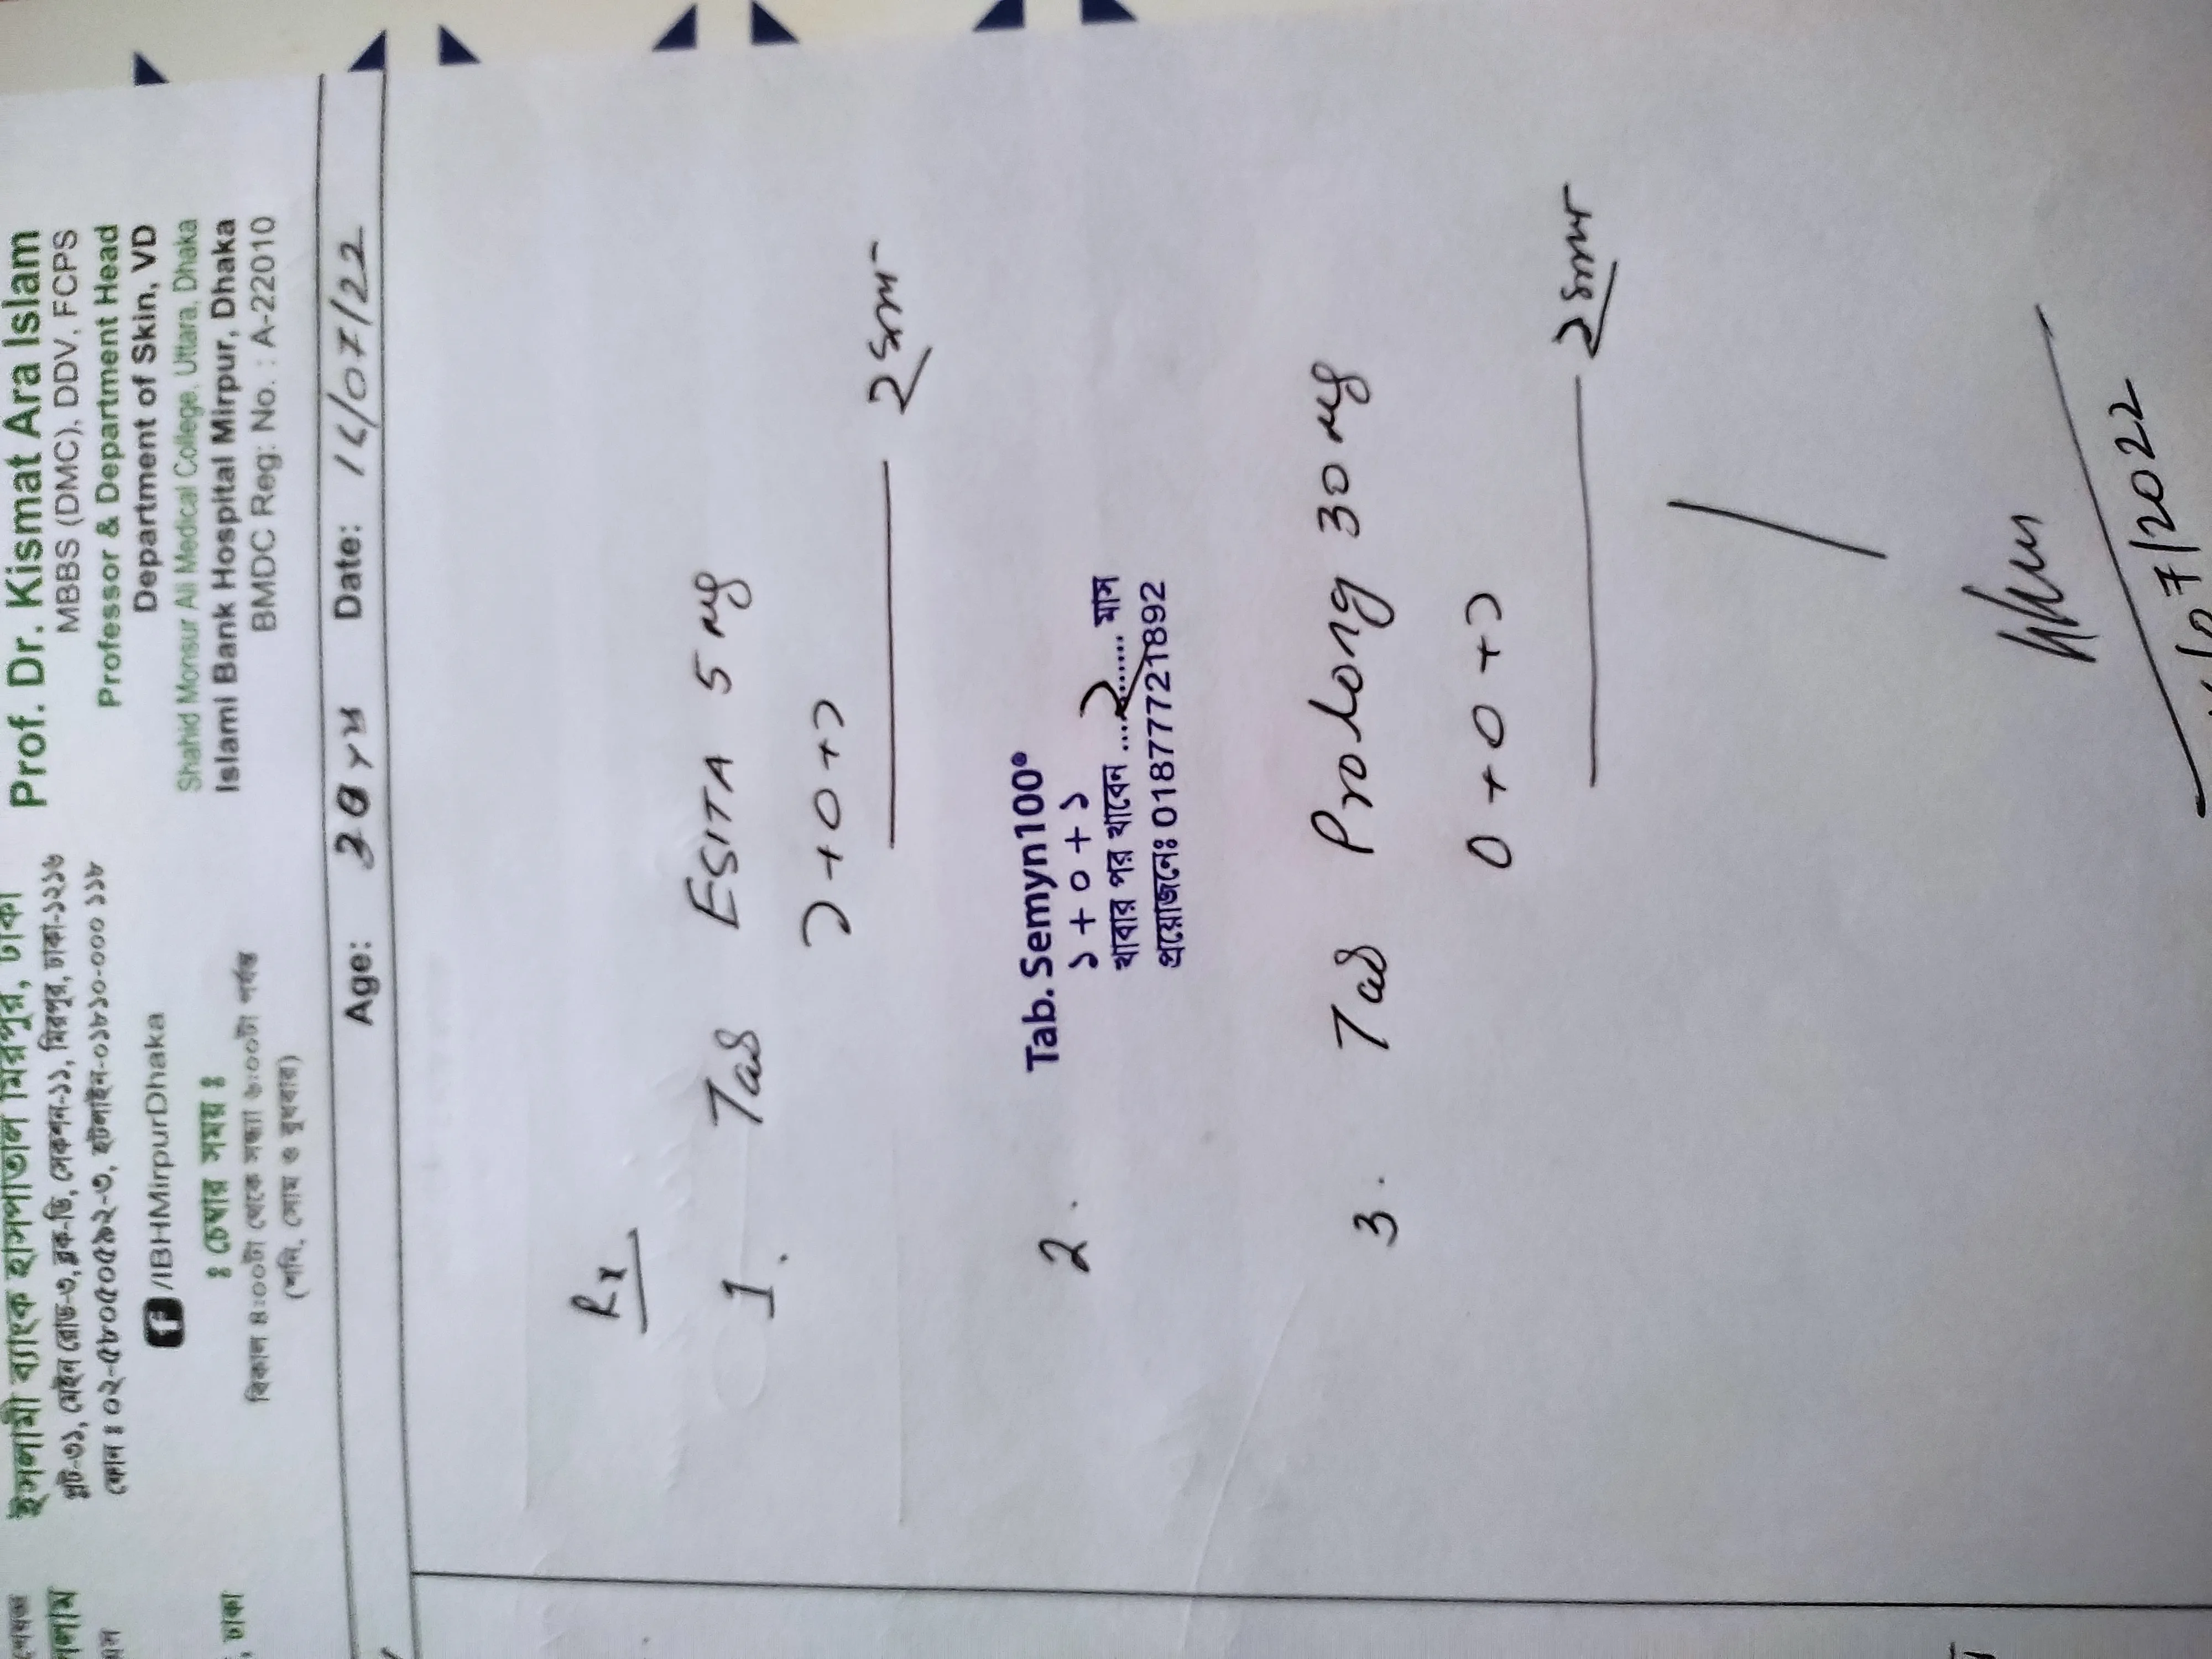 ইসলামী ব্যাংক হাসপাতাল মিরপুর, ঢাকা
প্লট-৩১, মেইন রোড-৩, ব্লক-ডি, সেকশন-১১, মিরপুর, ঢাকা-১২১৬
ফোন ঃ ০২-৫৮০৫০৫৯২-৩, হটলাইন-০১৮১০-০০০ ১১৮
/IBHMirpurDhaka
ঃ চেম্বার সময় ঃ
বিকাল ৪:০০টা থেকে সন্ধ্যা ৬:০০টা পর্যন্ত
(শনি, সোম ও বুধবার)
Prof. Dr. Kismat Ara Islam
MBBS (DMC), DDV, FCPS
Professor & Department Head
Department of Skin, VD
Shahid Monsur Ali Medical College, Uttara, Dhaka
Islami Bank Hospital Mirpur, Dhaka
BMDC Reg: No. : A-22010
, ঢাকা
Age: Date: /07/22
Rx
1. Tab ESITA 5 mg
১+০+১
২ মাস
2. Tab. Semyn100
১+০+১
খাবার পর খাবেন ...২...... মাস
প্রয়োজনেঃ 01877721892
3. Tab Prolong 30 mg
০+০+১
২ মাস
/07/2022